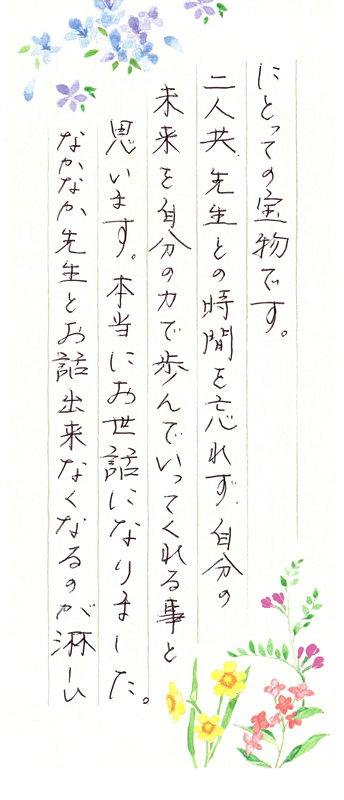 にとっての宝物です。
二人共、先生との時間を忘れず、自分の
未来を自分の力で歩んでいってくれる事と
思います。本当にお世話になりました。
なかなか先生とお話出来なくなるのが淋しい